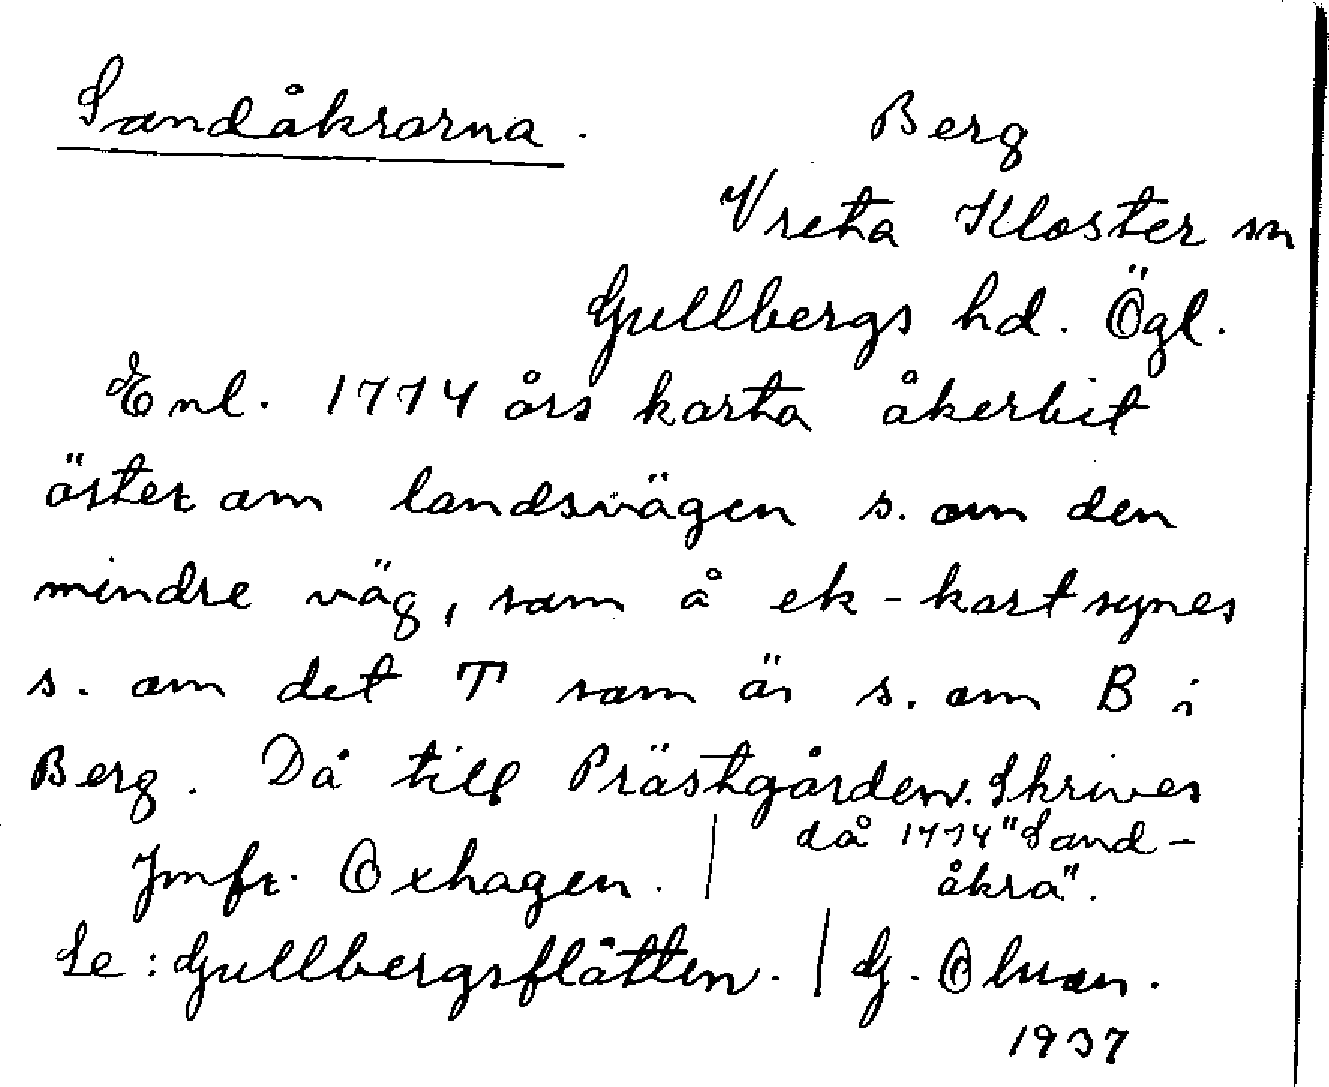 Sandåkrarna.
Berg
Vreta Kloster sn
Gullbergs hd. Ögl.
Enl. 1774 års karta åkerbit
öster om landsvägen s. om den
mindre väg, som å ek-kart synes
s. om det T som är s. om B i
Berg. Då till Prästgården. Skrives
då 1774 "Sand-
åkra".
Jmfr. Oxhagen.
Se: Gullbergsflätten. G. Olson.
1937